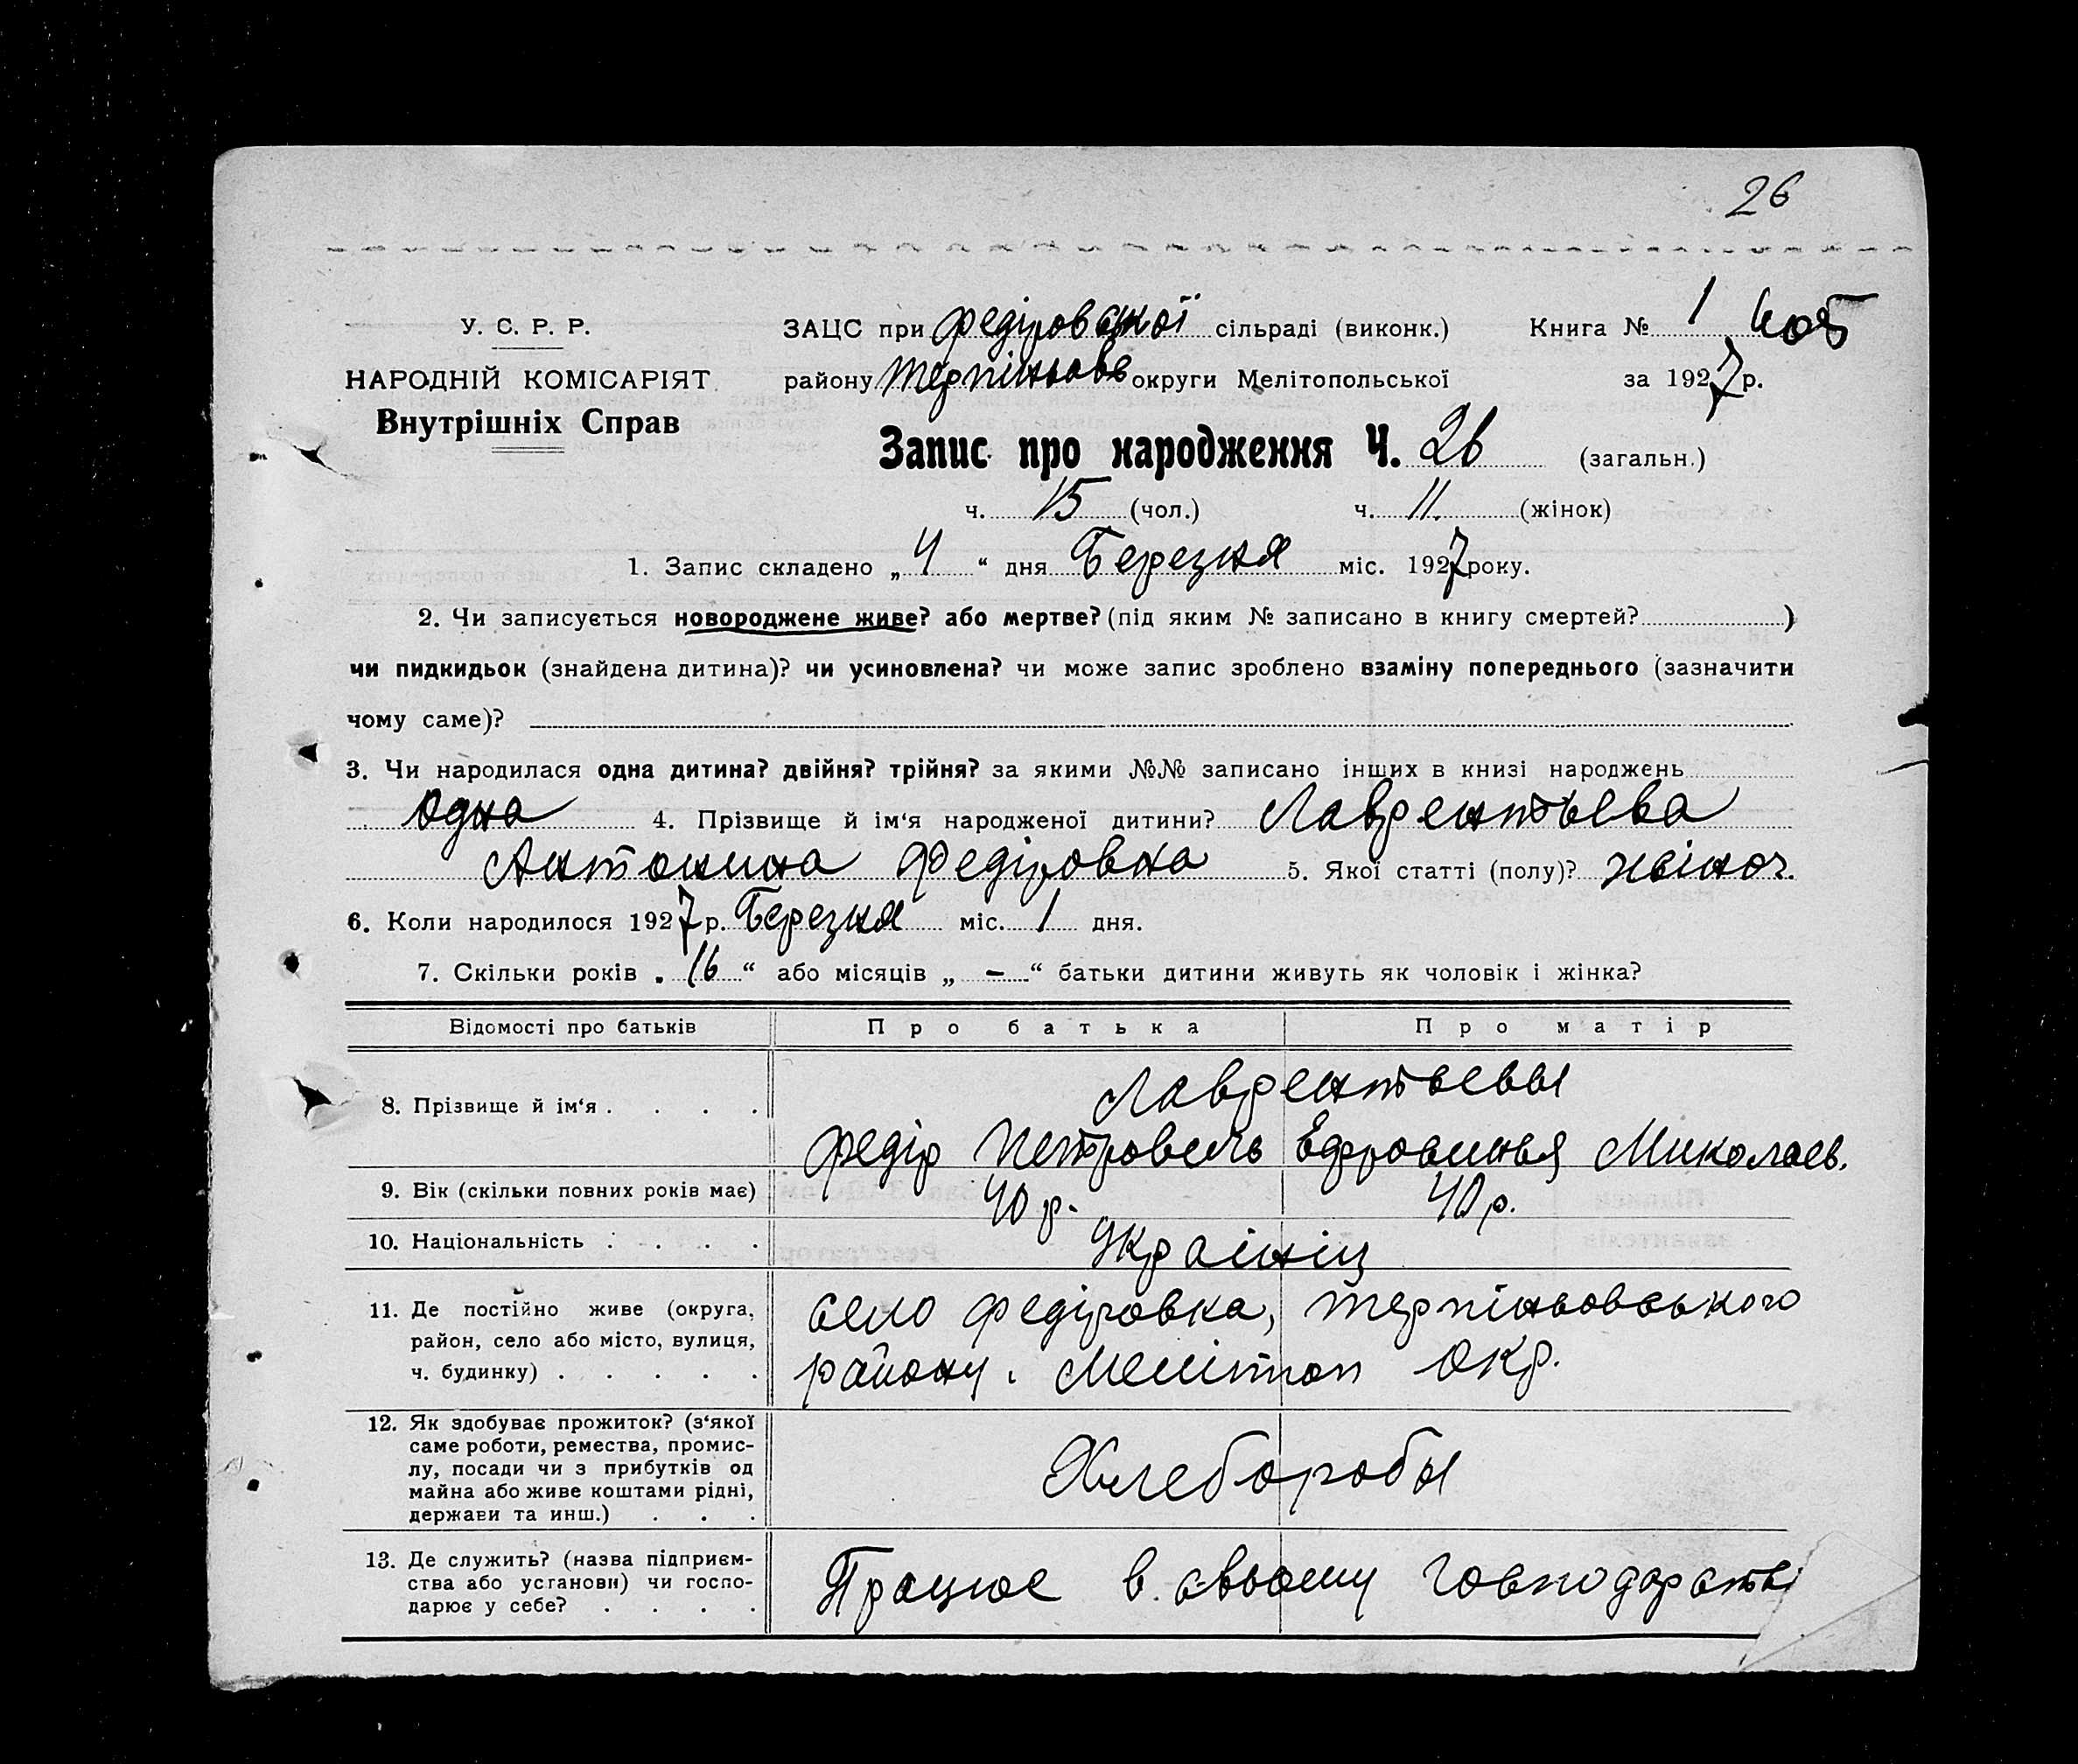 26
У. С. Р. Р.
НАРОДНІЙ КОМІСАРІЯТ
Внутрішніх Справ
ЗАЦС при Федіровської сільраді (виконк.) Книга № 1
району Терпіньовв округи Мелітопольської за 1927 р.
Запис про народження Ч. 26 (загальн.)
ч. 15 (чол.) ч. 11. (жінок)
1. Запис складено „ 4 “ дня Березня міс. 1927 року.
2. Чи записується новороджене живе? або мертве? (під яким № записано в книгу смертей? )
чи пидкидьок (знайдена дитина)? чи усиновлена? чи може запис зроблено взаміну попереднього (зазначити
чому саме)?
3. Чи народилася одна дитина? двійня? трійня? за якими №№ записано інших в книзі народжень
Одна 4. Прізвище й ім‘я народженої дитини? Лаврентьева
Антонина Федіровна 5. Якої статті (полу)? жіноч.
6. Коли народилося 1927 р. Березня міс. 1 дня.
7. Скільки років „ 16 “ або місяців „ — “ батьки дитини живуть як чоловік і жінка?
Відомості про батьків Про батька Про матір
8. Прізвище й ім‘я . . . . Лаврентьевы
Федір Петровичь Ефросинья Миколаев.
9. Вік (скільки повних років має) 40 р. 40 р.
10. Національність . . . . Україніц
11. Де постійно живе (округа, район, село або місто, вулиця, ч. будинку) . . . . .
село Федіровка, Терпіньовського
району. Мелітоп окр.
12. Як здобуває прожиток? (з‘якої саме роботи, ремества, промис-
лу, посади чи з прибутків од
майна або живе коштами рідні,
держави та инш.) . . .
Хлеборобы
13. Де служить? (назва підприєм-
ства або установи) чи госпо-
дарює у себе? . . . .
Працюе в свьому господарстві